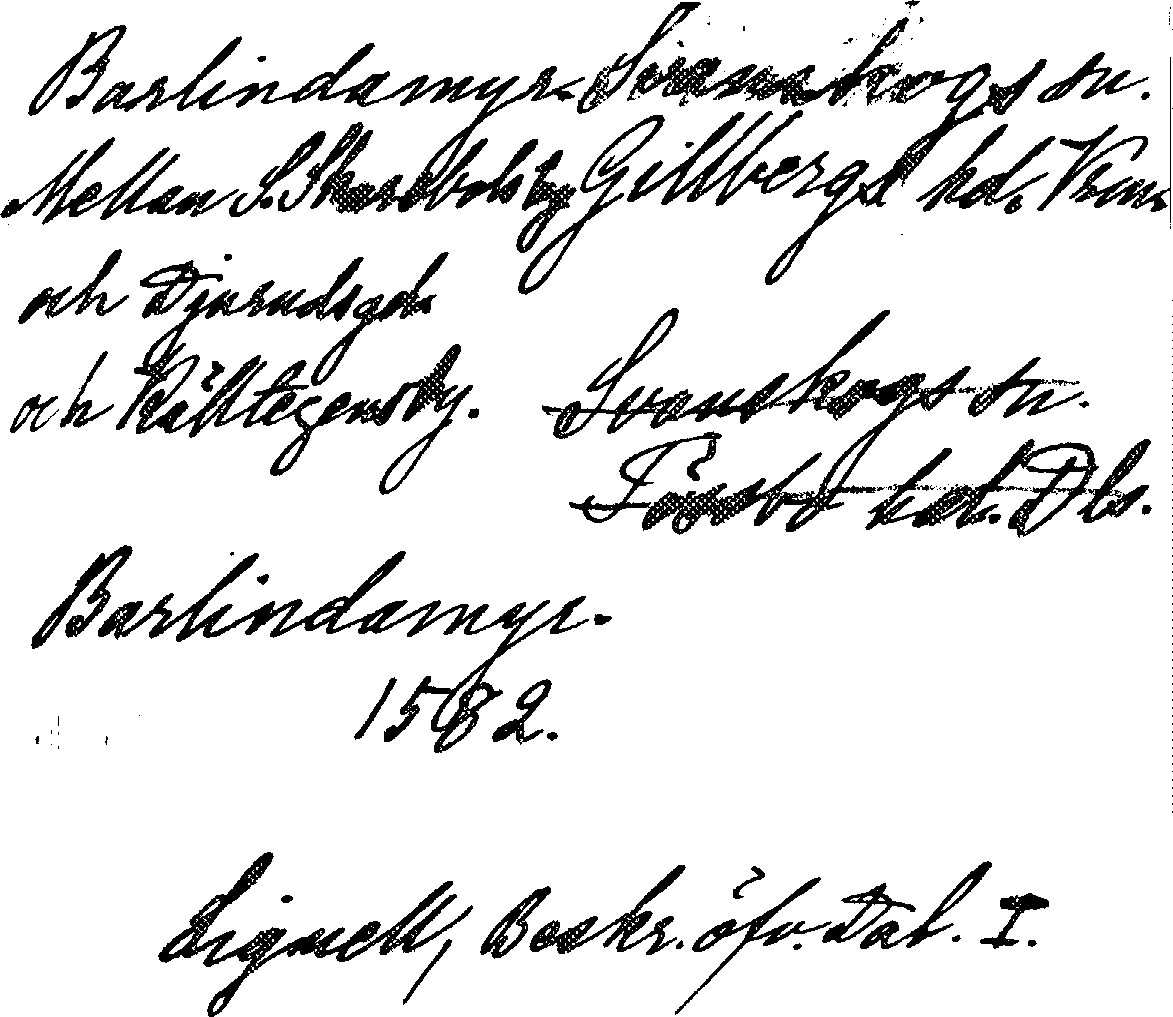 Barlindamyr. Svanskogs sn.
Mellan S. Skarbolsby Gillbergs hd. Vrm.
och Djurudsgdn
och Källtegensby.
Svanskogs sn.
Tössbo hd. Dls.
Barlindamyr.
1582.
Lignell, Beskr. öfv. Dal. I.